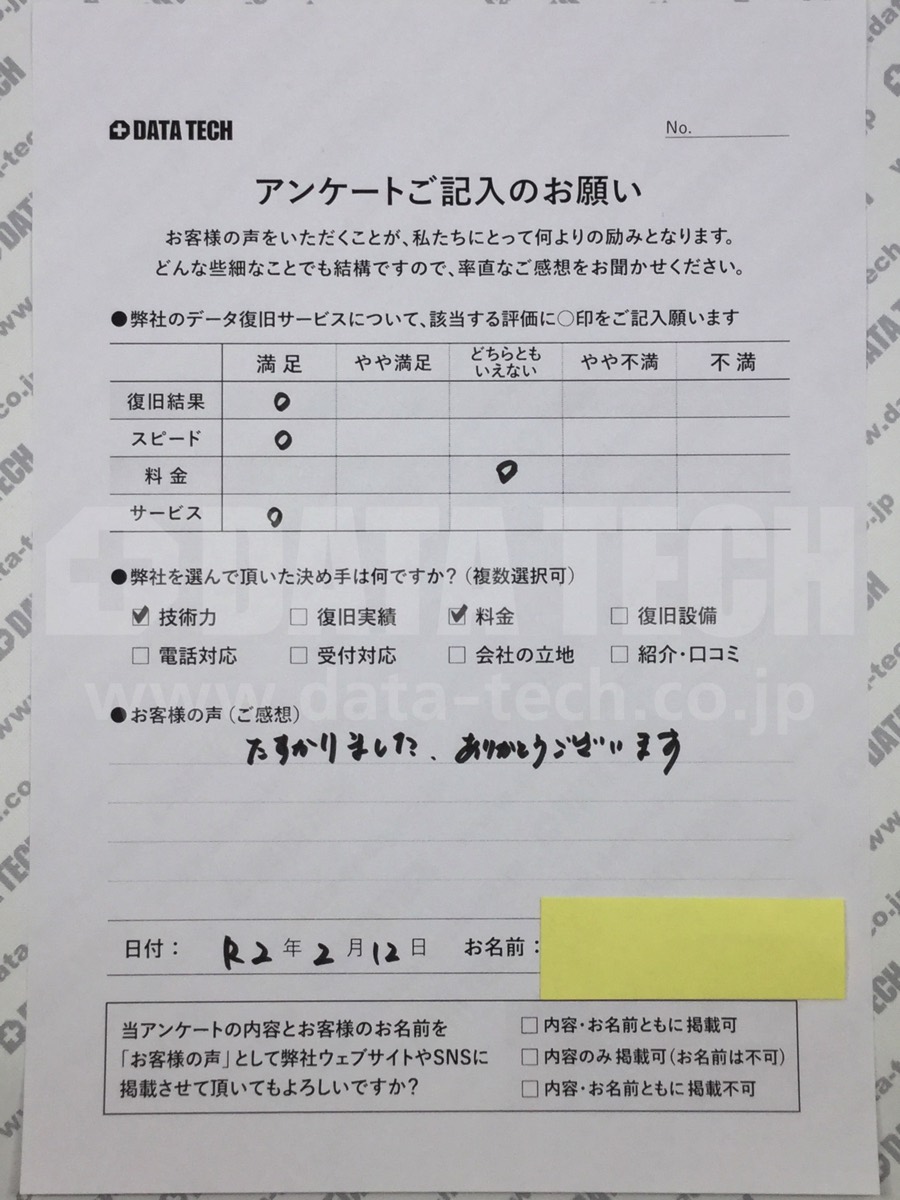 DATA TECH
No.
アンケートご記入のお願い
お客様の声をいただくことが、私たちにとって何よりの励みとなります。
どんな些細なことでも結構ですので、率直なご感想をお聞かせください。
●弊社のデータ復旧サービスについて、該当する評価に○印をご記入願います
満足 やや満足 どちらとも いえない やや不満 不満
復旧結果 ○
スピード ○
料金 ○
サービス ○
DATA TECH
●弊社を選んで頂いた決め手は何ですか？（複数選択可）
☑ 技術力 □ 復旧実績 ☑ 料金 □ 復旧設備
□ 電話対応 □ 受付対応 □ 会社の立地 □ 紹介・口コミ
www.data-tech.co.jp
●お客様の声（ご感想）
たすかりました、ありがとうございます
日付： R2年 2月 12日 お名前：
当アンケートの内容とお客様のお名前を
「お客様の声」として弊社ウェブサイトやSNSに
掲載させて頂いてもよろしいですか？
□ 内容・お名前ともに掲載可
□ 内容のみ掲載可（お名前は不可）
□ 内容・お名前ともに掲載不可